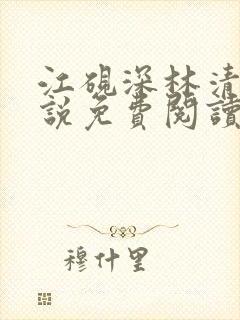 江硯深林清
說免費閱讀
穆什里